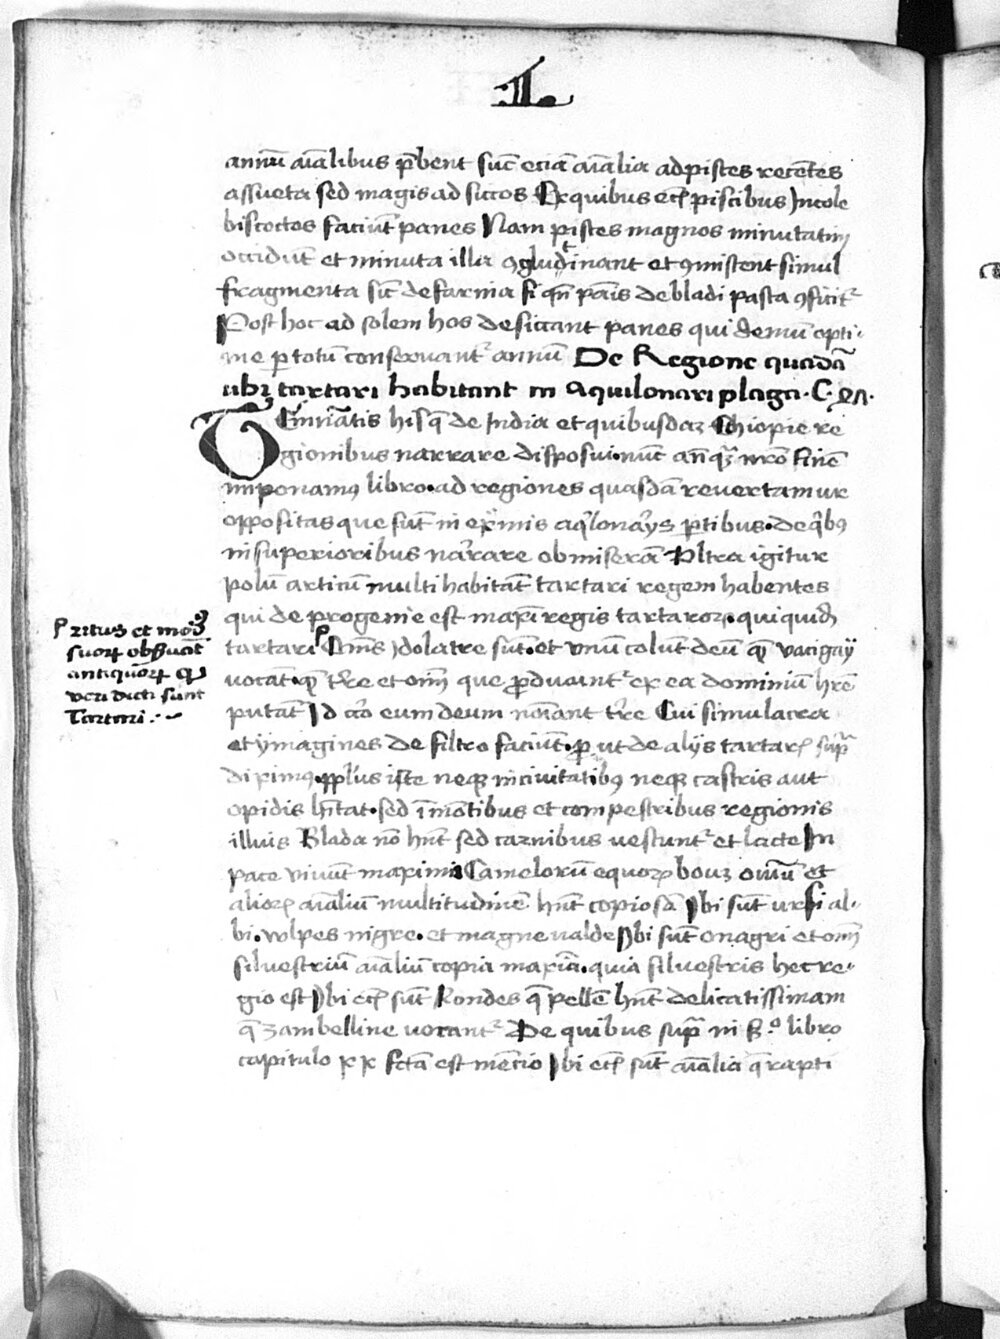 .L.
annū aīalibus p̄bent sūt eciā aīalia ad pisces recētes
assueta sed magis ad siccos Ex quibus ecī piscibus Incole
biscoctos faciūt panes Nam pisces magnos minutatim
occidūt et minuta illa ꝯgludinant et ꝯmiscent simul
fragmenta sic̄ de farina fi qn̄ panis de bladi pasta ꝯficitᷣ
Post hoc ad solem hos desiccant panes qui demū opti-
me ꝑ totū conseruantᷣ annū De Regione quadā
ubi tartari habitant in aquilonari plaga. C.
Erminatis his q̄ de India et quibusdaꝫ Ethiopie re
gionibus narrare disposui. nūc an̄qꝫ nr̄o finē
imponamꝰ libro. ad regiones quasdā reuertamur
oppositas que sūt in ex̄mis aq̇lonarꝭys ꝑtibus. de q̇bꝰ
in superioribus nar̄are obmiserā Vltra igitur
polū articū multi habitāt tartari regem habentes
qui de progenie est maxī regis tartaroꝝ. qui quidē
tartari Om̄s ydolatre sūt. et vnū colūt deū qē vacigay
uocāt. qē tr̄re et om̄ que ꝓducūtᷣ ex ea dominiū hr̄e
putāt Id c̄o eum deum nōīant tr̄re Cui simulacra
et ymagines de filtro faciūt. ꝓut de alijs tartarꝭ supra
diximꝰ. ppl̄us iste neqꝫ in ciuitatibꝰ neqꝫ castris aut
opidis hītat. sed ī mōtibus et compestribus regionis
illius Blada nō hn̄t sed carnibus uescuntᷣ et lacte In
pace viuūt maxima Camelorū equoꝝ bouꝫ ouiū et
alioꝝ aīaliū multitudinē hn̄t copiosā Ibi sūt ursi al-
bi. volpes nigre. et magne valde Ibi sūt onagri et om̄
siluestriū aīaliū copia maxīa. quia siluestris hec re-
gio est Ibi ecī sūt Rondes q̄ pellē hn̄t delicatissimam
q̄ zambelline uocantᷣ De quibus supra in p.º libro
capitulo xx fcā est mētio Ibi ecī sūt aīalia q̄ rapti
ritus et mod
suoꝝ obseruāt
antiquoꝝ qui
veri dicti sunt
Tartari.